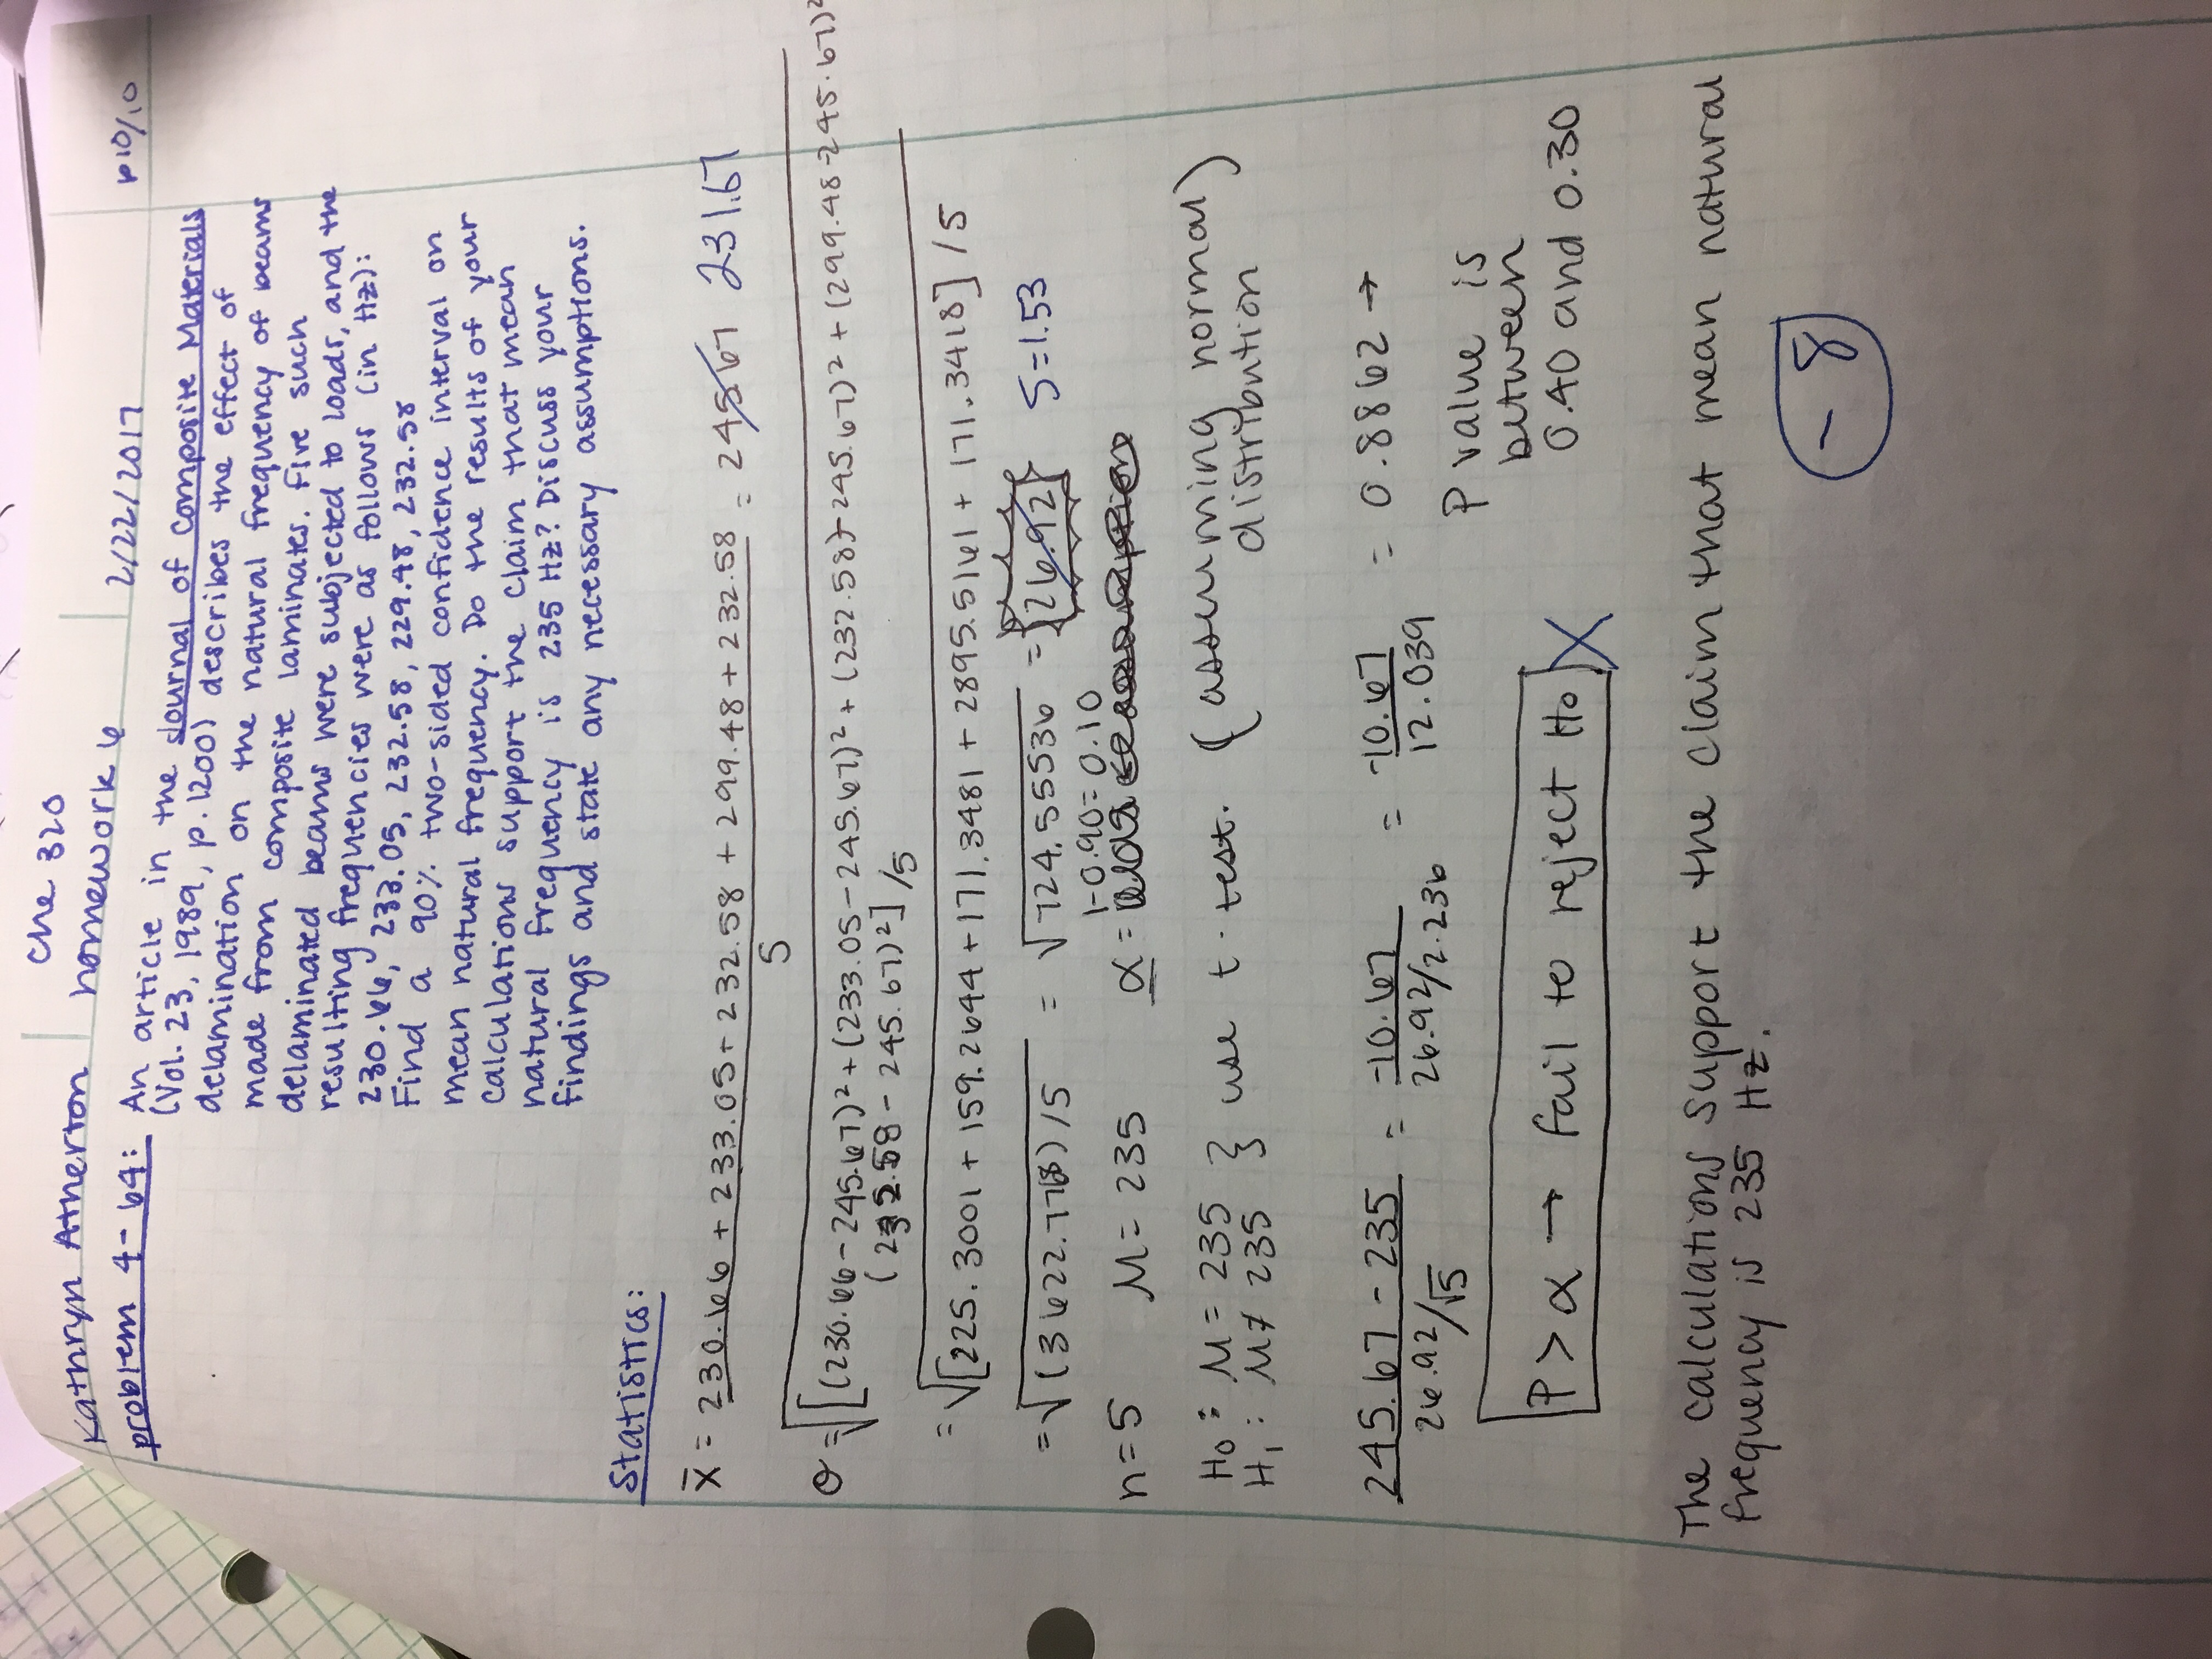 Kathryn Atherton
che 320
homework 6
2/22/2017
p10/10
problem 4-64:
An article in the Journal of Composite Materials
(Vol. 23, 1989, p. 1200) describes the effect of
delamination on the natural frequency of beams
made from composite laminates. Five such
delaminated beams were subjected to loads, and the
resulting frequencies were as follows (in Hz):
230.66, 233.05, 232.58, 229.48, 232.58
Find a 90% two-sided confidence interval on
mean natural frequency. Do the results of your
calculations support the claim that mean
natural frequency is 235 Hz? Discuss your
findings and state any necessary assumptions.
Statistics:
x̄ = 230.66 + 233.05 + 232.58 + 299.48 + 232.58 = 245.67 231.67
5
σ = √[(230.66 - 245.67)² + (233.05 - 245.67)² + (232.58) - 245.67)² + (299.48 - 245.67)²
(232.58 - 245.67)²] /5
= √[225.3001 + 159.2644 + 171.3481 + 2895.5161 + 171.3418] /5
= √(3622.7768) /5 = √724.55536 = 26.92 S=1.53
1-0.90 = 0.10
n = 5 μ = 235 α =
H₀ : μ = 235 } use t-test. (assuming normal)
H₁ : μ ≠ 235 distribution
245.67 - 235 = -10.67 = -10.67 = 0.8862 →
26.92/√5 26.92/2.236 12.039
P value is
between
0.40 and 0.30
P > α → fail to reject H₀ X
The calculations support the claim that mean natural
frequency is 235 Hz.
-8